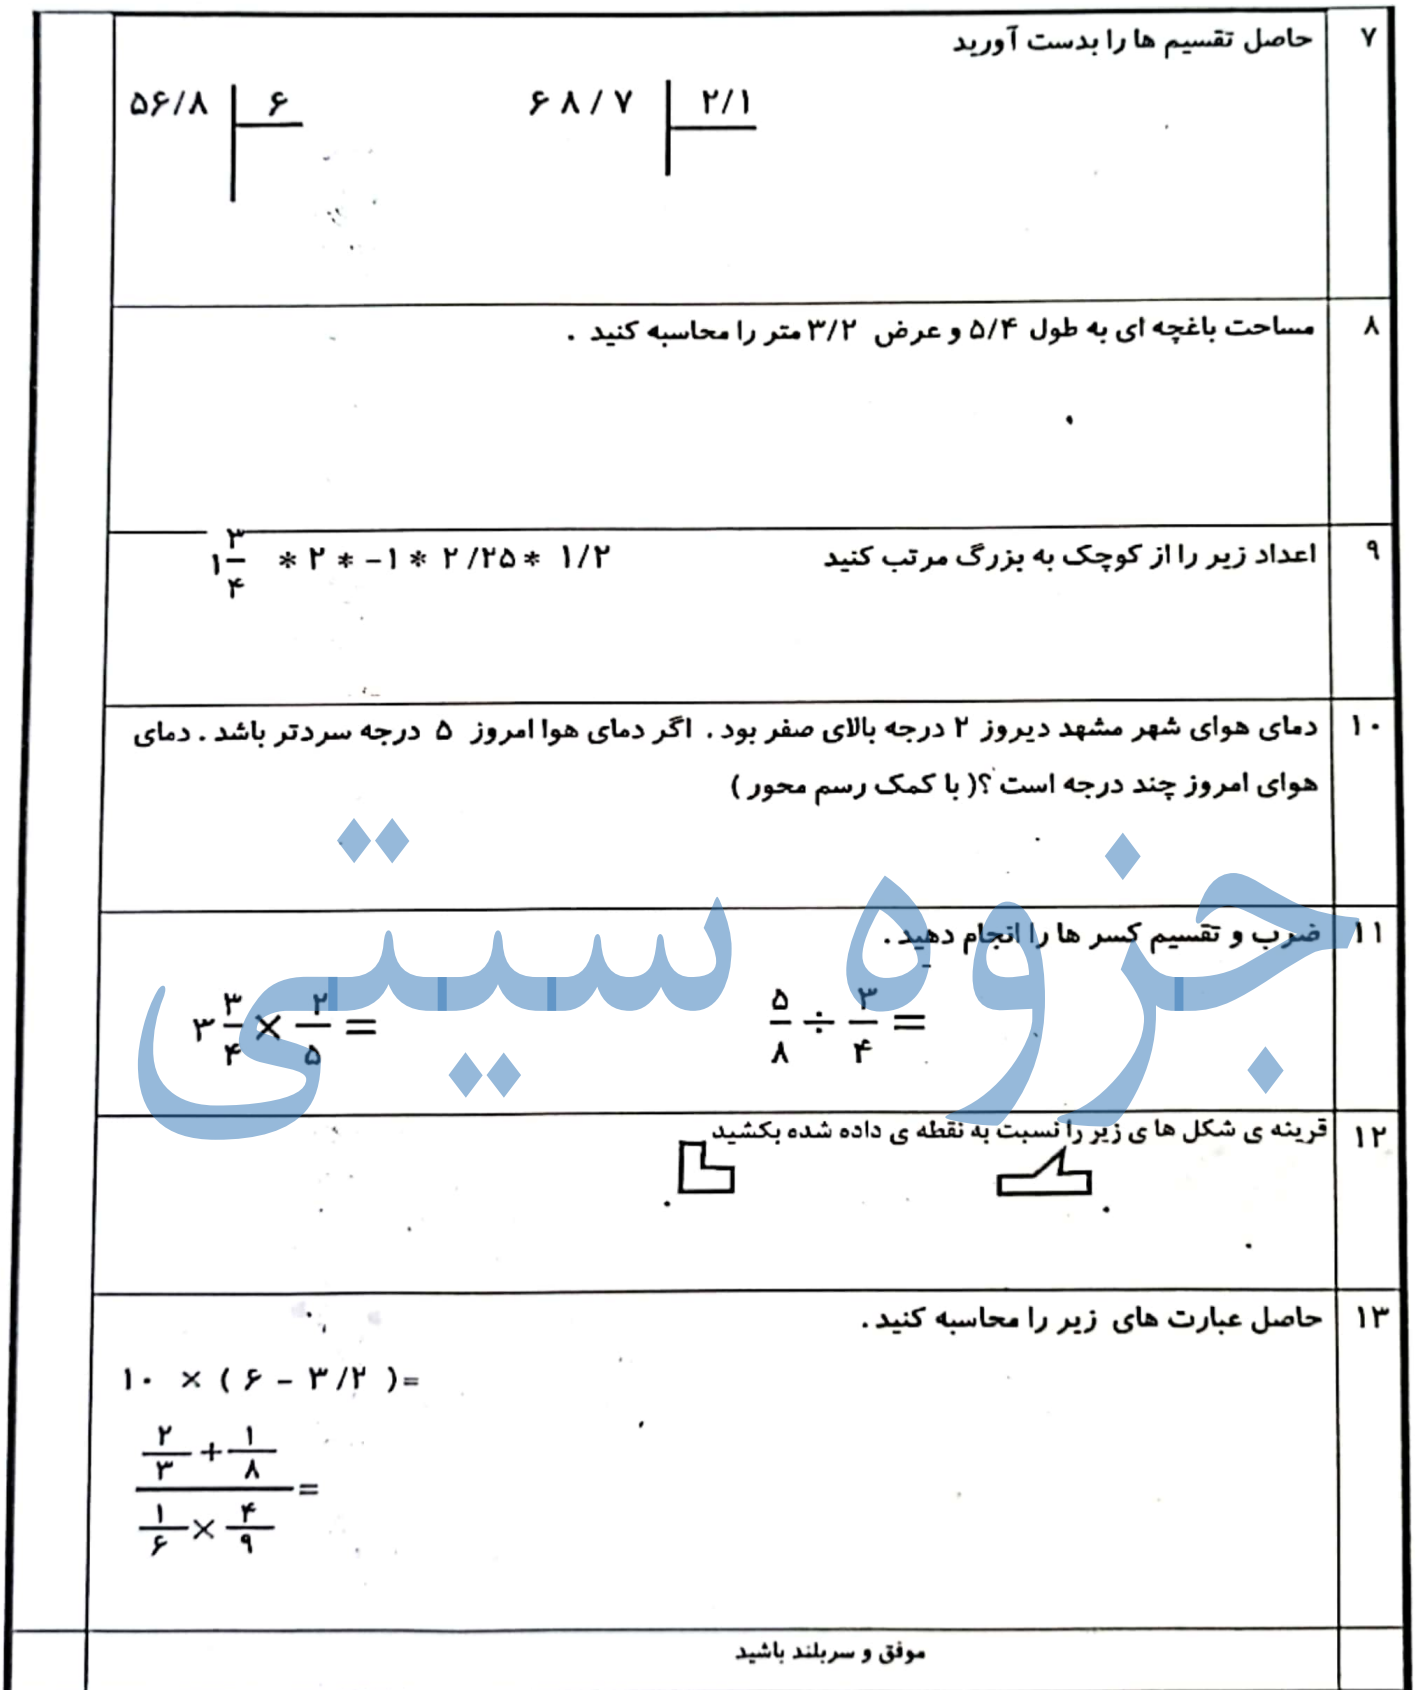 ۷ حاصل تقسیم ها را بدست آورید
۵۶/۸ ۶ ۶۸/۷ ۲/۱
۸ مساحت باغچه ای به طول ۵/۴ و عرض ۳/۲ متر را محاسبه کنید .
۹ اعداد زیر را از کوچک به بزرگ مرتب کنید ۱ ۳/۴ * ۲ * -۱ * ۲/۲۵ * ۱/۲
۱۰ دمای هوای شهر مشهد دیروز ۲ درجه بالای صفر بود . اگر دمای هوا امروز ۵ درجه سردتر باشد . دمای
هوای امروز چند درجه است ؟( با کمک رسم محور )
جزوه سیتی
۱۱ ضرب و تقسیم کسر ها را انجام دهید .
۳ ۳/۴ × ۲/۵ = ۵/۸ ÷ ۳/۴ =
۱۲ قرینه ی شکل ها ی زیر را نسبت به نقطه ی داده شده بکشید
۱۳ حاصل عبارت های زیر را محاسبه کنید .
۱۰ × ( ۶ - ۳/۲ )=
۲/۳ + ۱/۸
=
۱/۶ × ۴/۹
موفق و سربلند باشید